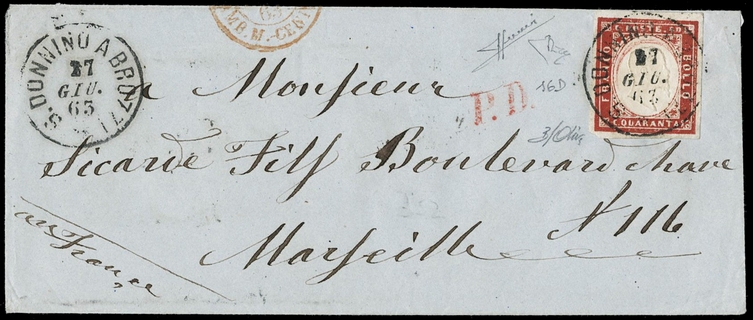 S. DONNINO ABRUZZI
27
GIU.
63
63
AMB. M.-CEN
P.D.
FRANCO POSTE BOLLO
C. QUARANTA
27
GIU.
63
a Monsieur
16D
Sicard Fils Boulevard Chave
N 116
Marseille
en France